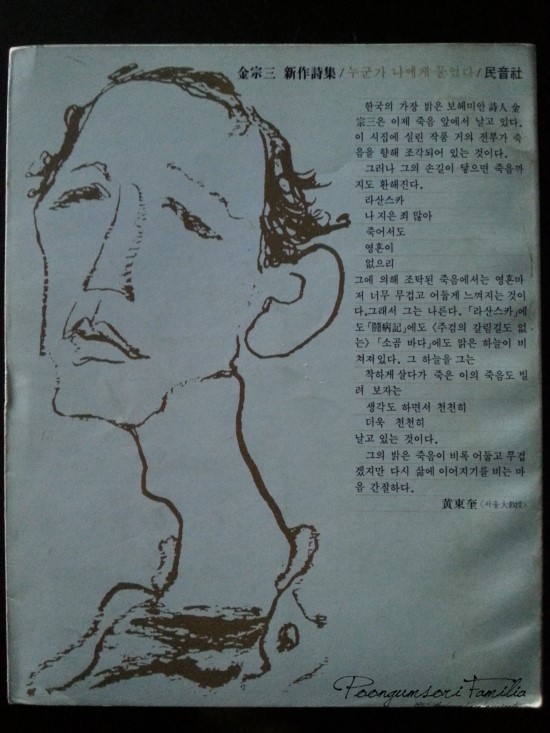 金宗三 新作詩集/누군가 나에게 물었다/民音社
한국의 가장 맑은 보헤미안 詩人 金
宗三은 이제 죽음 앞에서 날고 있다.
이 시집에 실린 작품 거의 전부가 죽
음을 향해 조각되어 있는 것이다.
그러나 그의 손길이 닿으면 죽음까
지도 환해진다.
라산스카
나 지은 죄 많아
죽어서도
영혼이
없으리
그에 의해 조탁된 죽음에서는 영혼마
저 너무 무겁고 어둡게 느껴지는 것이
다.그래서 그는 나른다. 「라산스카」에
도「鬪病記」에도 〈주검의 갈림길도 없
는〉 「소곰 바다」에도 맑은 하늘이 비
쳐져있다. 그 하늘을 그는
착하게 살다가 죽은 이의 죽음도 빌
려 보자는
생각도 하면서 천천히
더욱 천천히
날고 있는 것이다.
그의 밝은 죽음이 비록 어둡고 무겁
겠지만 다시 삶에 이어지기를 비는 마
음 간절하다.
黃東奎〈서울大敎授〉
Poongumsori Familia